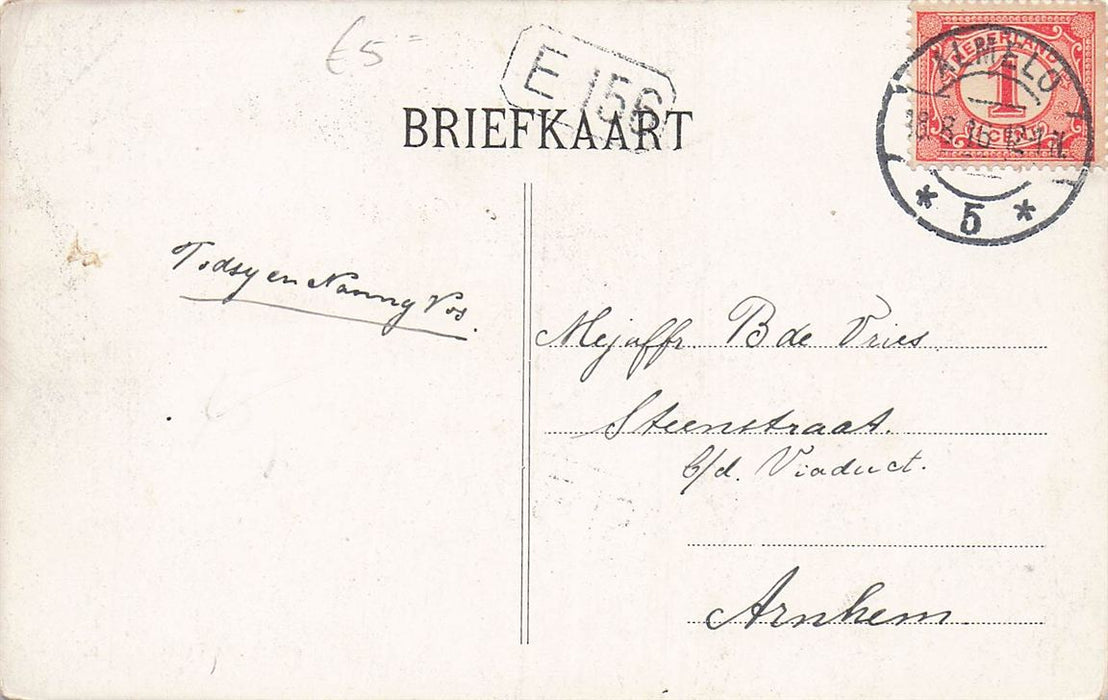 €5
E 156
BRIEFKAART
NEDERLAND
1
CENT
ALMELO
8.16 12-1 N.
* 5 *
Todsy en Nanny Vos.
Mejaffr B de Vries.
Steenstraat.
b/d. Viaduct.
Arnhem.